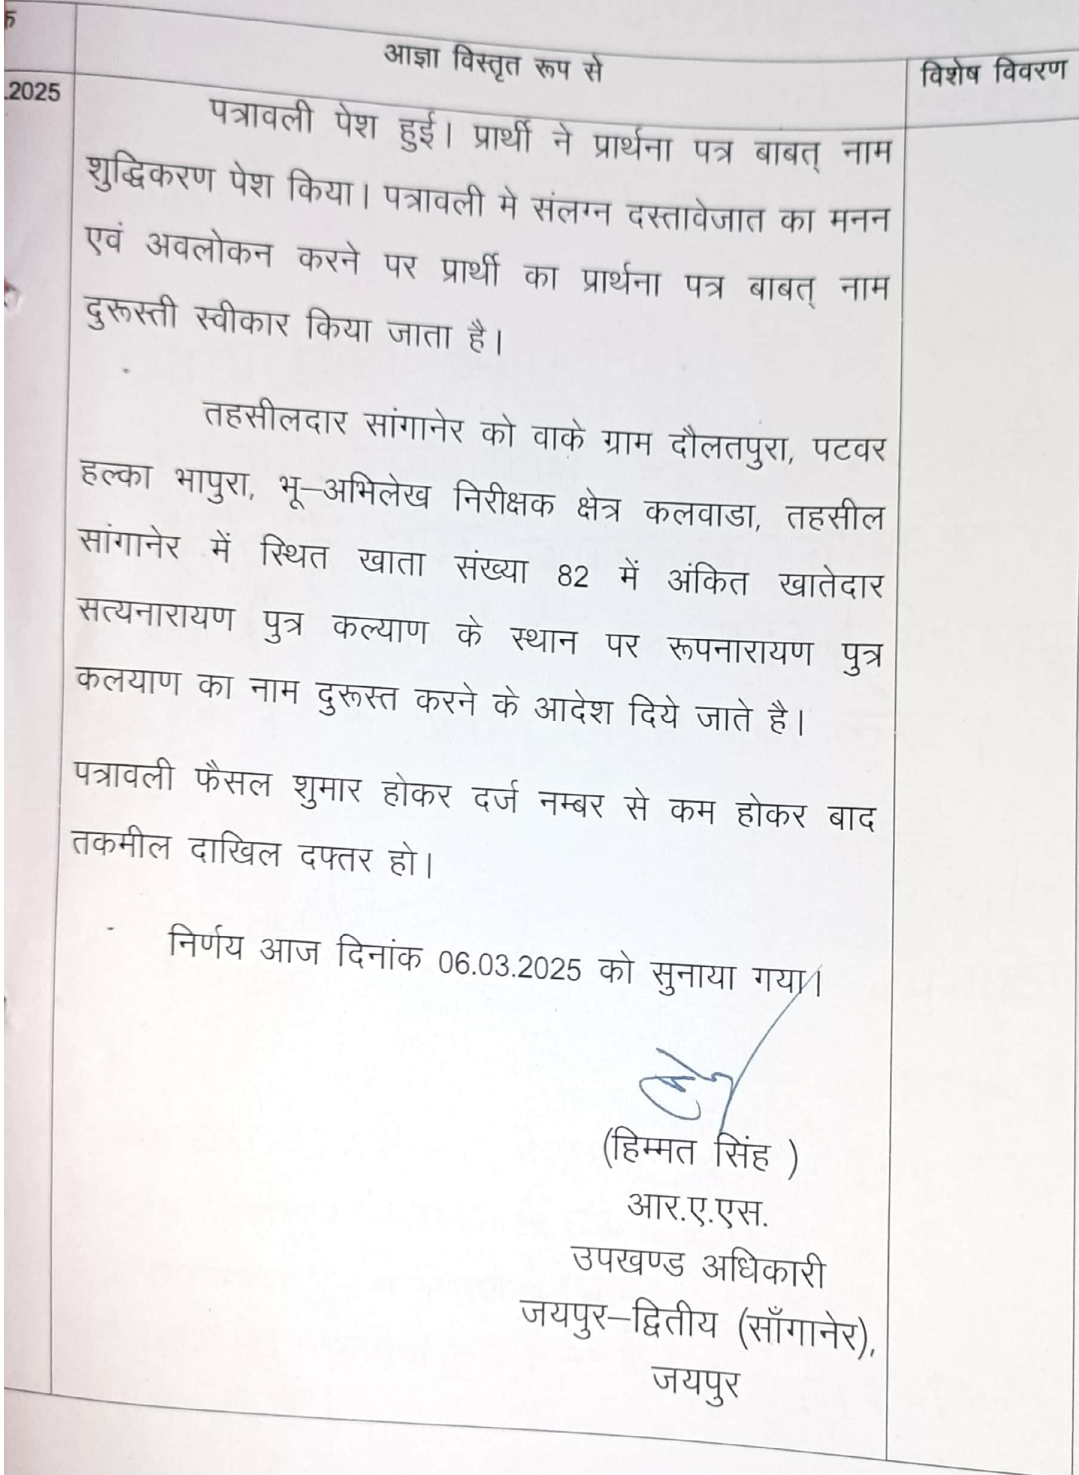 आज्ञा विस्तृत रूप से
विशेष विवरण
.2025
पत्रावली पेश हुई। प्रार्थी ने प्रार्थना पत्र बाबत् नाम
शुद्धिकरण पेश किया। पत्रावली मे संलग्न दस्तावेजात का मनन
एवं अवलोकन करने पर प्रार्थी का प्रार्थना पत्र बाबत् नाम
दुरूस्ती स्वीकार किया जाता है।
तहसीलदार सांगानेर को वाके ग्राम दौलतपुरा, पटवर
हल्का भापुरा, भू–अभिलेख निरीक्षक क्षेत्र कलवाडा, तहसील
सांगानेर में स्थित खाता संख्या 82 में अंकित खातेदार
सत्यनारायण पुत्र कल्याण के स्थान पर रूपनारायण पुत्र
कलयाण का नाम दुरूस्त करने के आदेश दिये जाते है।
पत्रावली फैसल शुमार होकर दर्ज नम्बर से कम होकर बाद
तकमील दाखिल दफ्तर हो।
निर्णय आज दिनांक 06.03.2025 को सुनाया गया।
(हिम्मत सिंह )
आर.ए.एस.
उपखण्ड अधिकारी
जयपुर–द्वितीय (साँगानेर),
जयपुर